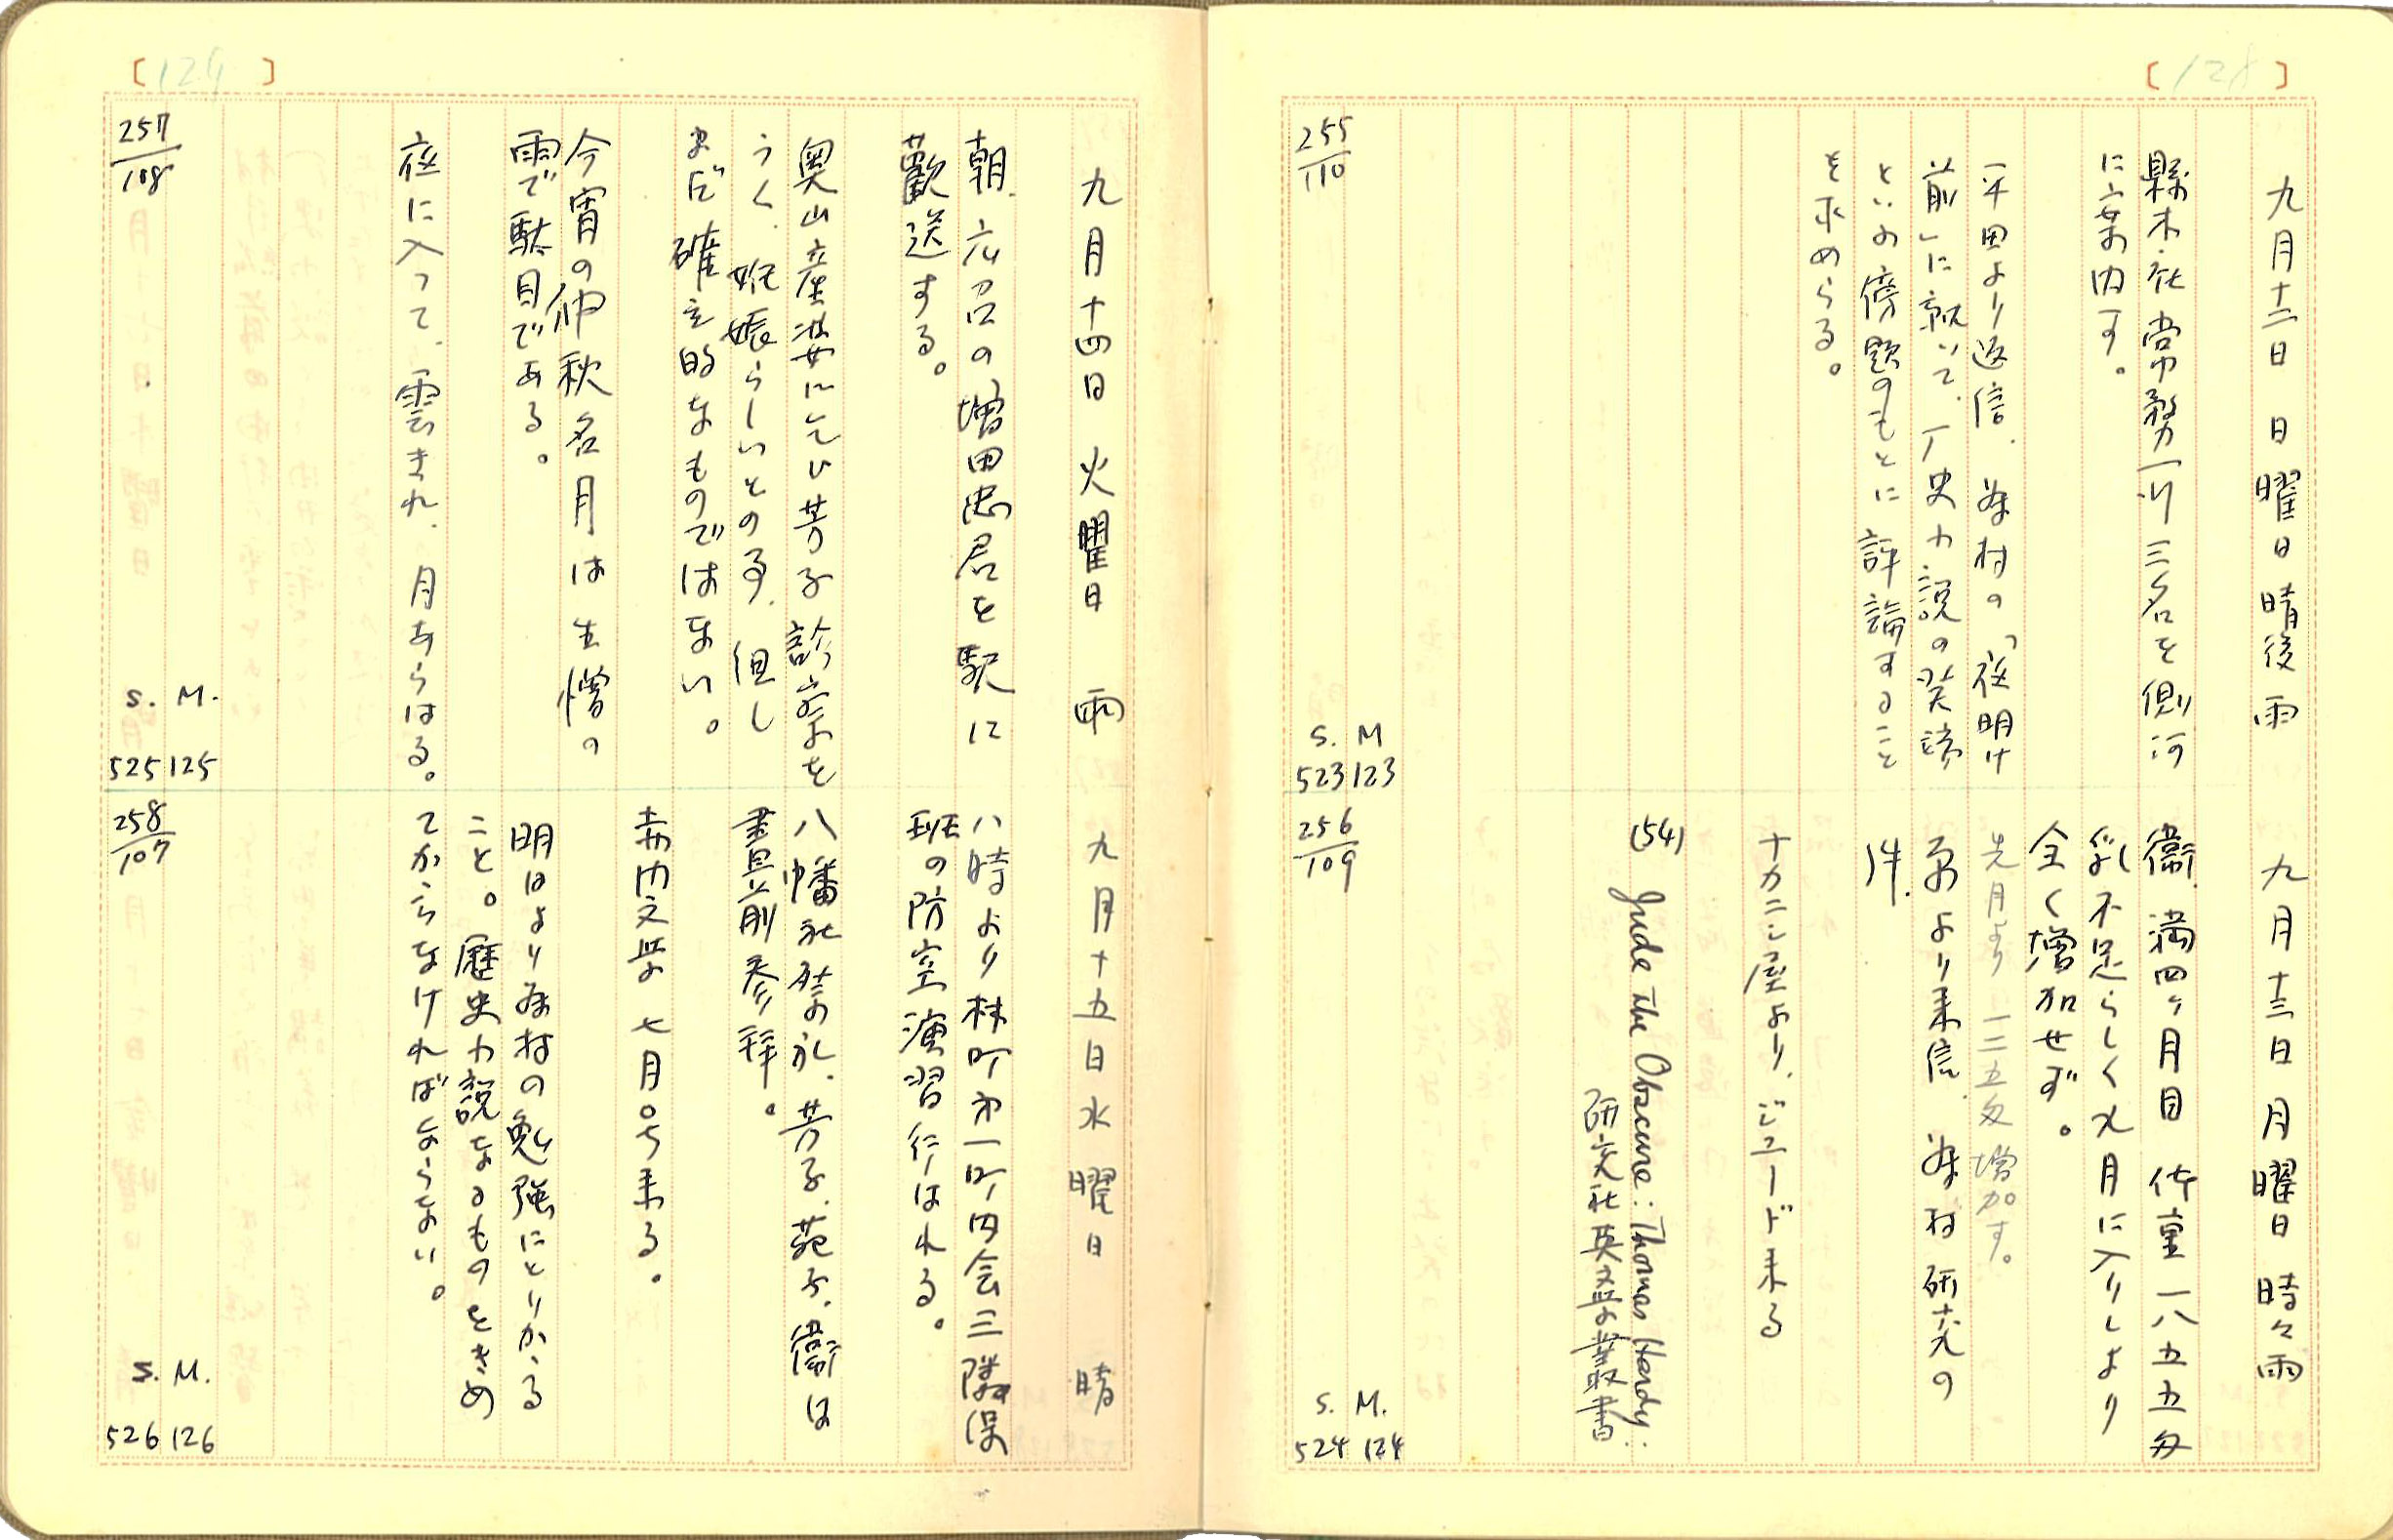 [128]
九月十二日 日曜日 晴後雨
縣木社常務一川三名を側河
に案内す。
平田より返信、藤村の「夜明け
前」に就いて、丁史カ説の英譯
といふ傍題のもとに評論すること
を求めらる。
255/110
S. M
523 123
九月十三日 月曜日 時々雨
衞 満四ヶ月目 体重一八五五匁
乳不足らしく九月に入りしより
全く増加せず。
先月より一二五匁増加す。
より来信、藤村研究の
件。
ナカニシ屋より、ジュード来る
(54) Jude the Obscure: Thomas Hardy.
研究社英文学叢書
256/109
S. M.
524 124
[129]
九月十四日 火曜日 雨
朝、応召の増田忠君を駅に
歡送する。
奥山産婆に乞ひ芳子診察を
うく、姙娠らしいとの事、但し
まだ確定的なものではない。
今宵の仲秋名月は生憎の
雨で駄目である。
夜に入つて、雲きれ、月あらはる。
257/108
S. M.
525 125
九月十五日 水曜日 晴
八時より林町第一町内会三隣保
班の防空演習行はれる。
八幡社祭礼、芳子、苑子、衞は
晝具前参拝。
書内文学 七月号来る。
明日より藤村の勉強にとりかゝる
こと。歴史カ説なるものをきめ
てかゝらなければならない。
258/107
S. M.
526 126